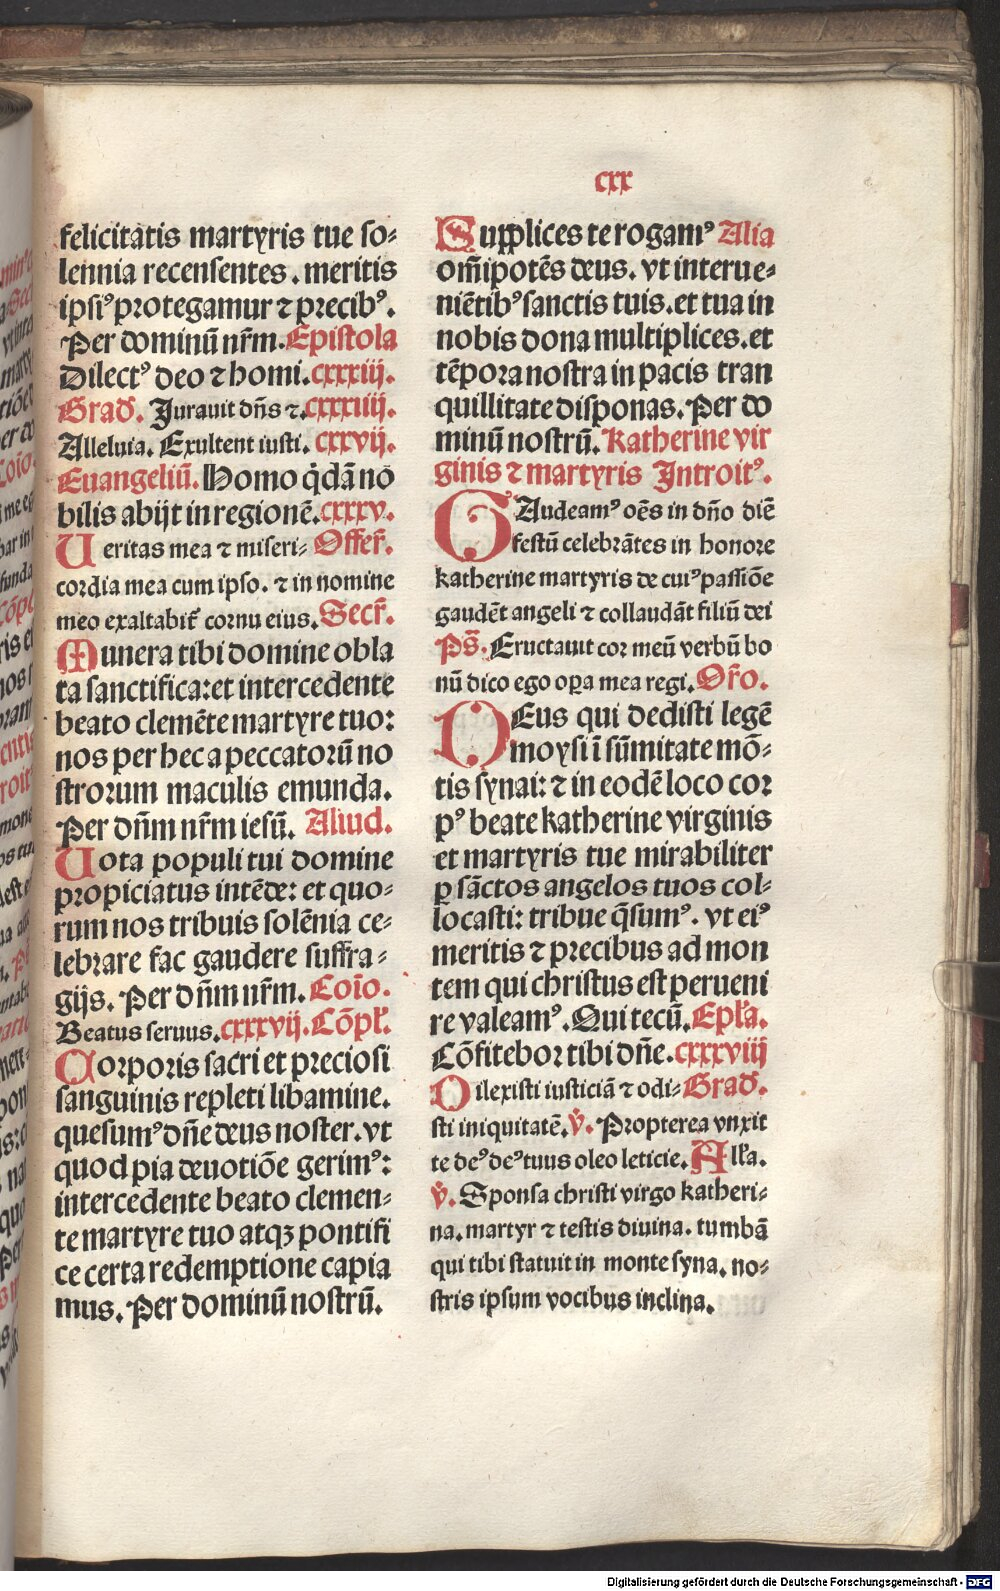 cxx
felicitatis martyris tue so⸗
lennia recensentes . meritis
ipsiꝰ protegamur ⁊ precibꝰ.
Per dominū nr̄m. Epistola
Dilectꝰ deo ⁊ homi. cxxxiij.
Grad̄. Jurauit dn̄s ⁊. cxxxiiij.
Alleluia. Exultent iusti. cxxvij.
Euangeliū. Homo q̇dā no
bilis abijt in regionē. cxxxv.
Ueritas mea ⁊ miseri⸗ Offer̄.
cordia mea cum ipso. ⁊ in nomine
meo exaltabit̄ cornu eius. Secr̄.
Munera tibi domine obla
ta sanctifica: et intercedente
beato clemēte martyre tuo:
nos per hec a peccatorū no
strorum maculis emunda.
Per dn̄m nr̄m iesū. Aliud.
Uota populi tui domine
propiciatus intēde: et quo⸗
rum nos tribuis solēnia ce⸗
lebrare fac gaudere suffra⸗
gijs. Per dn̄m nr̄m. Coīo.
Beatus seruus. cxxxvij. Cōpl̄.
Corporis sacri et preciosi
sanguinis repleti libamine.
quesumꝰ dn̄e deus noster. vt
quod pia deuotiōe gerimꝰ:
intercedente beato clemen⸗
te martyre tuo atqꝫ pontifi
ce certa redemptione capia
mus. Per dominū nostrū.
Supplices te rogamꝰ Alia
om̄ipotēs deus. vt interue⸗
niētibꝰ sanctis tuis. et tua in
nobis dona multiplices. et
tēpora nostra in pacis tran
quillitate disponas. Per do
minū nostrū. Katherine vir
ginis ⁊ martyris Introitꝰ.
GAudeamꝰ oēs in dn̄o diē
festū celebrātes in honore
katherine martyris de cuiꝰ passiōe
gaudēt angeli ⁊ collaudāt filiū dei
Ps̄. Eructauit cor meū verbū bo
nū dico ego oꝑa mea regi. Or̄o.
DEus qui dedisti legē
moysi ī sūmitate mō⸗
tis synai: ⁊ in eodē loco cor
pꝰ beate katherine virginis
et martyris tue mirabiliter
ꝑ sāctos angelos tuos col⸗
locasti: tribue q̄sumꝰ. vt eiꝰ
meritis ⁊ precibus ad mon
tem qui christus est perueni
re valeamꝰ. Qui tecū. Epl̄a.
Cōfitebor tibi dn̄e. cxxxviij
Dilexisti iusticiā ⁊ odi⸗ Grad̄.
sti iniquitatē. v̇. Propterea vnxit
te deꝰ deꝰ tuus oleo leticie. All̄a.
v̇. Sponsa christi virgo katheri⸗
na. martyr ⁊ testis diuina. tumbā
qui tibi statuit in monte syna. no⸗
stris ipsum vocibus inclina.
Digitalisierung gefördert durch die Deutsche Forschungsgemeinschaft - DFG